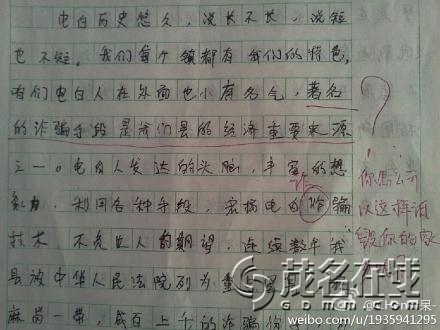 电白历史悠久，说长不长，说短
也不短。我们每个镇都有我们的特色，
咱们电白人在外面也小有名气，著名
的诈骗手段是我们县的经济重要来源
之一。电白人发达的头脑，丰富的想
象力，利用各种手段，宏扬电白诈骗
技术，不负世人的期望，连续数年我
县被中华人民法院列为重
麻岗一带，成百上千的诈骗
？
诈
你怎么可
以这样诋
毁你的家
茂名在线
weibo.com/u/1935941295